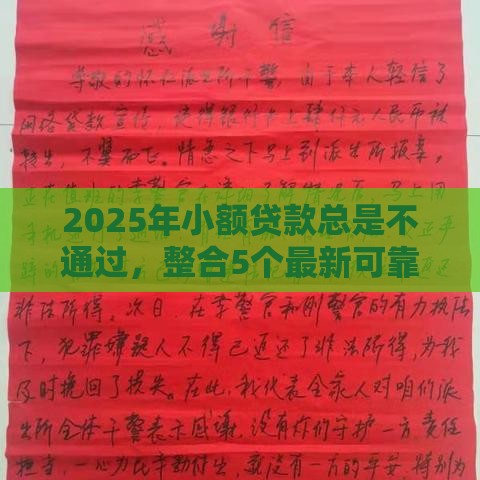 感谢信
尊敬的怀仁派出所干警，由于本人轻信了
网络贷款宣传，使得银行卡上肆仟元人民币被
转出，不翼而飞。情急之下马上到派出所报案，
正在值班的李警官在详
2025年小额贷款总是不
通过，整合5个最新可靠
非法所得。次日，在李警官和刚警官的有力执法
下，犯罪嫌疑人不得已返还了非法所得，为我
及时挽回了损失。在此，我代表全家人对咱们派
出所全体干警表示感谢，没有你们守护一方，责任
担当，一心为民辛勤付出，就没有一方的平安，特别为